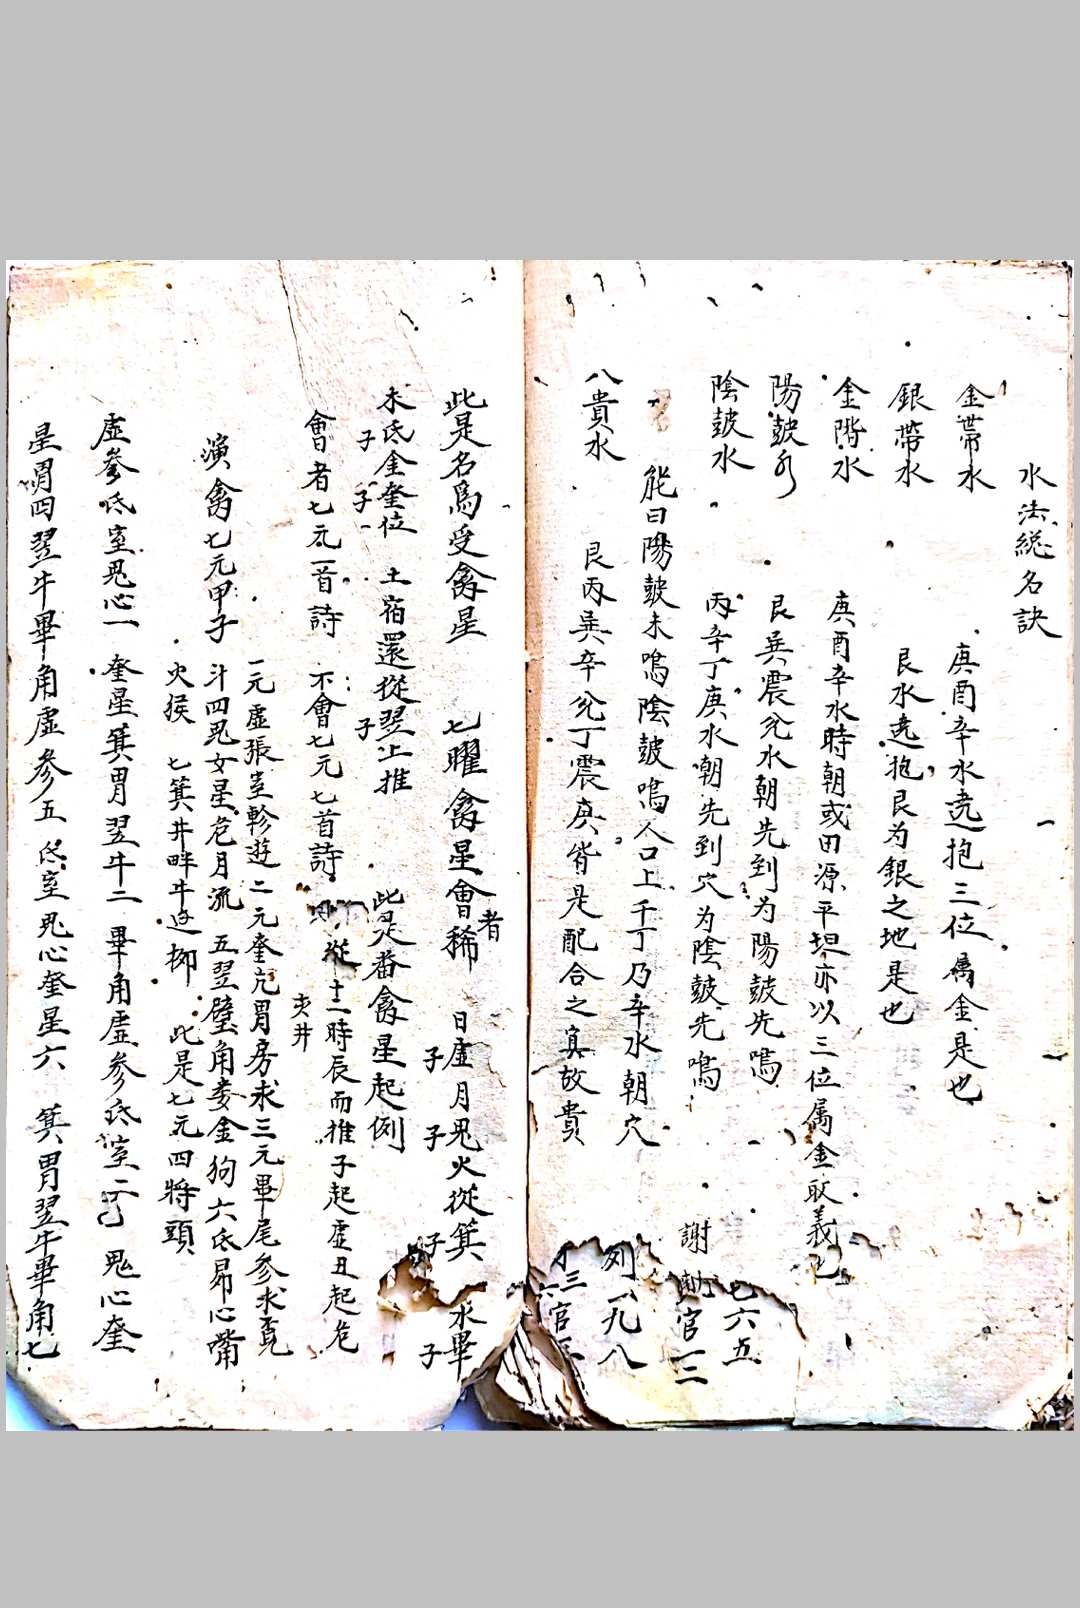 水法総名訣
金帶水　庚酉辛水遶抱三位屬金是也
銀帶水　艮水遶抱艮为銀之地是也
金階水　庚酉辛水時朝或田源平坦亦以三位属金取義也
陽皷水　艮巽震兊水朝先到为陽皷先鳴
陰皷水　丙辛丁庚水朝先到穴为陰皷先鳴
能曰陽皷未鳴陰皷鳴人口上千丁乃辛水朝穴
八貴水　艮丙巽辛兊丁震庚皆是配合之眞故貴
七六五
謝　官一二
列八九八
三官
此是名爲受禽星　七曜禽星會者稀　日虛月鬼火從箕　水畢
子　子　子　子
未氐金奎位　土宿還從翌上推　此是番禽星起例
子　子　子
會者七元一首詩　不會七元七首詩　從十二時辰而推子起虛丑起危
演禽七元甲子
一元虛張室軫遊二元奎亢胃房求三元畢尾參求覔
斗四鬼女星危月流五翌壁角娄金狗六氐昴心嘴
火猴七箕井畔牛逢柳　此是七元四將頭
虛參氐室鬼心一　奎星箕胃翌牛二　畢角虛參氐室三　鬼心奎
星胃四翌牛畢角虛參五　氐室鬼心奎星六　箕胃翌牛畢角七